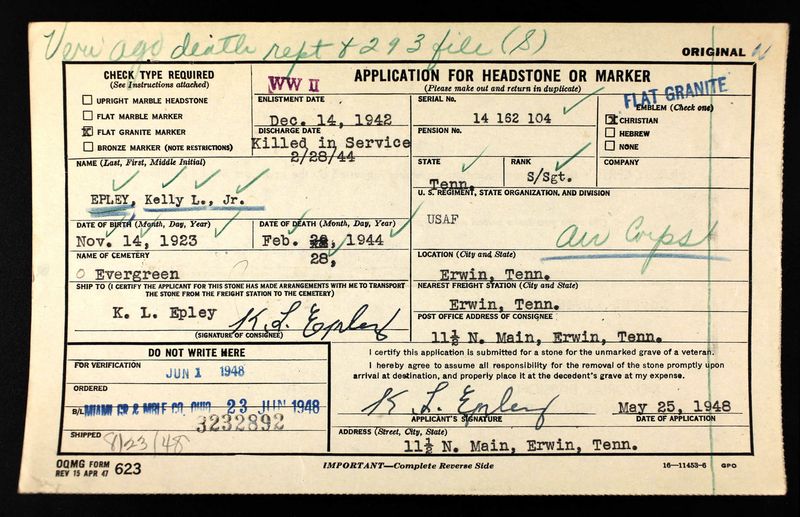 Veri ago death rept & 293 file (S)
ORIGINAL
CHECK TYPE REQUIRED
(See Instructions attached)
UPRIGHT MARBLE HEADSTONE
FLAT MARBLE MARKER
X FLAT GRANITE MARKER
BRONZE MARKER (NOTE RESTRICTIONS)
WW II
APPLICATION FOR HEADSTONE OR MARKER
(Please make out and return in duplicate)
FLAT GRANITE
ENLISTMENT DATE
Dec. 14, 1942
DISCHARGE DATE
Killed in Service
2/28/44
SERIAL No.
14 162 104
PENSION No.
EMBLEM (Check one)
X CHRISTIAN
HEBREW
NONE
NAME (Last, First, Middle Initial)
EPLEY, Kelly L., Jr.
STATE
Tenn.
RANK
S/Sgt.
COMPANY
U. S. REGIMENT, STATE ORGANIZATION, AND DIVISION
USAF
Air Corps
DATE OF BIRTH (Month, Day, Year)
Nov. 14, 1923
DATE OF DEATH (Month, Day, Year)
Feb. 28, 1944
NAME OF CEMETERY
Evergreen
LOCATION (City and State)
Erwin, Tenn.
SHIP TO (I CERTIFY THE APPLICANT FOR THIS STONE HAS MADE ARRANGEMENTS WITH ME TO TRANSPORT
THE STONE FROM THE FREIGHT STATION TO THE CEMETERY)
K. L. Epley
K L Epley
(SIGNATURE OF CONSIGNEE)
NEAREST FREIGHT STATION (City and State)
Erwin, Tenn.
POST OFFICE ADDRESS OF CONSIGNEE
11½ N. Main, Erwin, Tenn.
DO NOT WRITE HERE
FOR VERIFICATION
JUN 1 1948
ORDERED
B/L MIAMI GR & MRLE CO. OHIO 23 JUN 1948
3232892
SHIPPED 8/23/48
I certify this application is submitted for a stone for the unmarked grave of a veteran.
I hereby agree to assume all responsibility for the removal of the stone promptly upon
arrival at destination, and properly place it at the decedent's grave at my expense.
K L Epley
May 25, 1948
APPLICANT'S SIGNATURE
DATE OF APPLICATION
ADDRESS (Street, City, State)
11½ N. Main, Erwin, Tenn.
OQMG FORM
REV 15 APR 47 623
IMPORTANT—Complete Reverse Side
16—11453-6 GPO